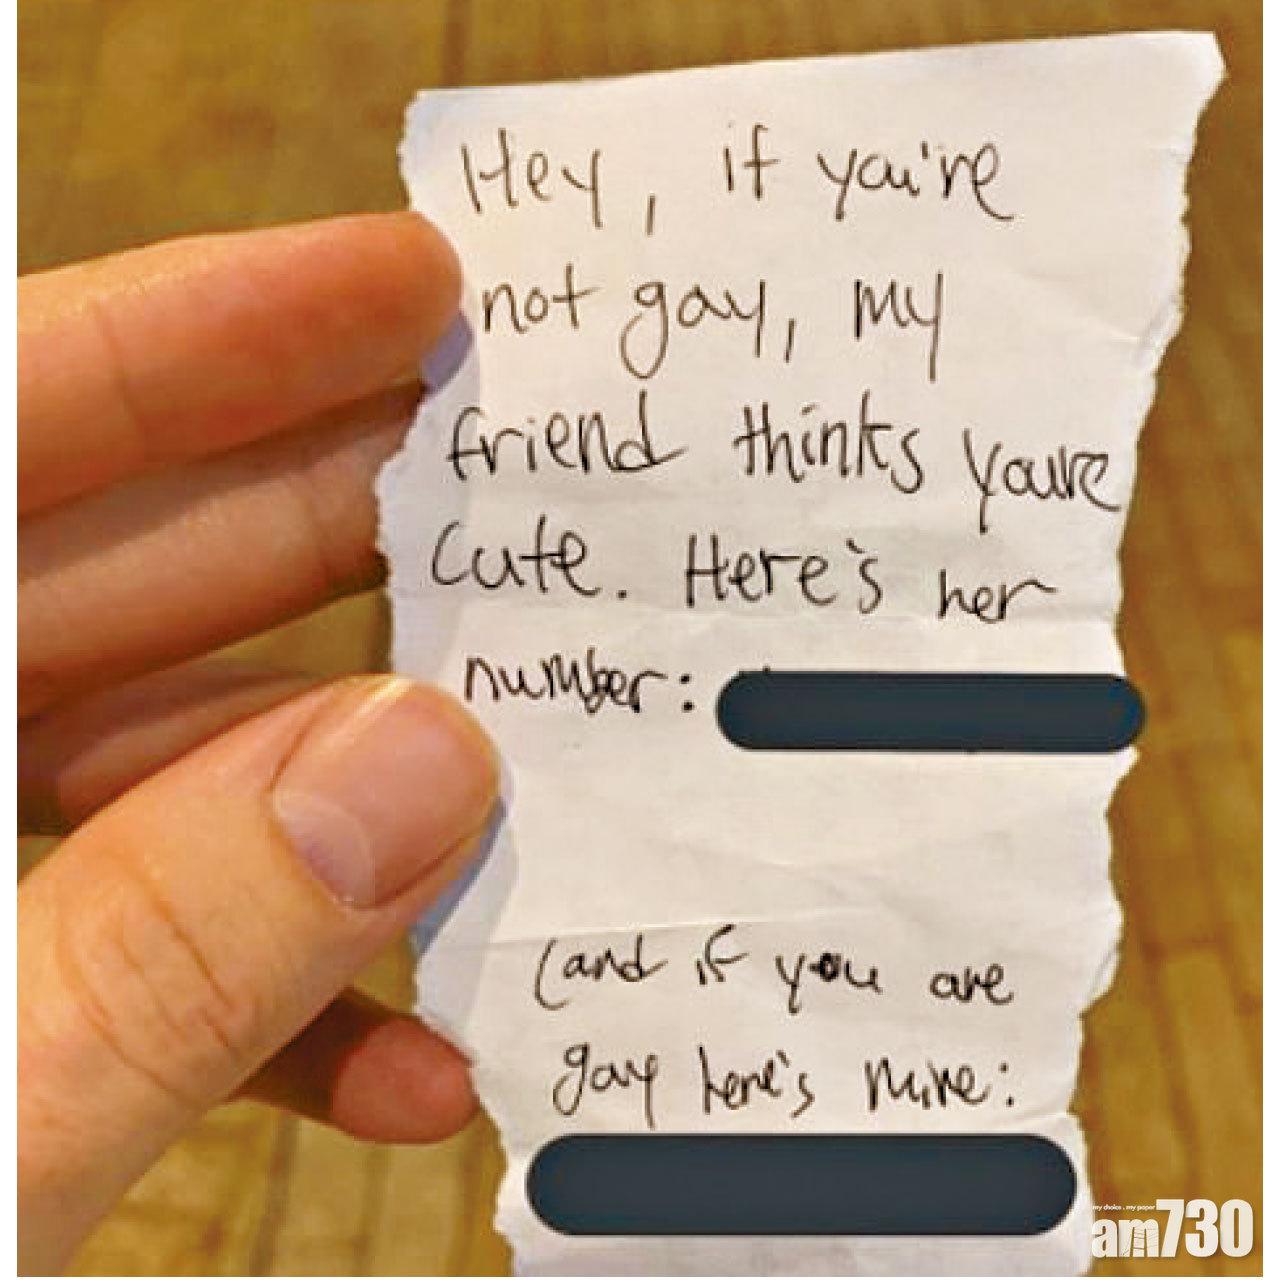 Hey, if you're
not gay, my
friend thinks you're
cute. Here's her
number:
(and if you are
gay here's mine:
my choice . my paper
am730